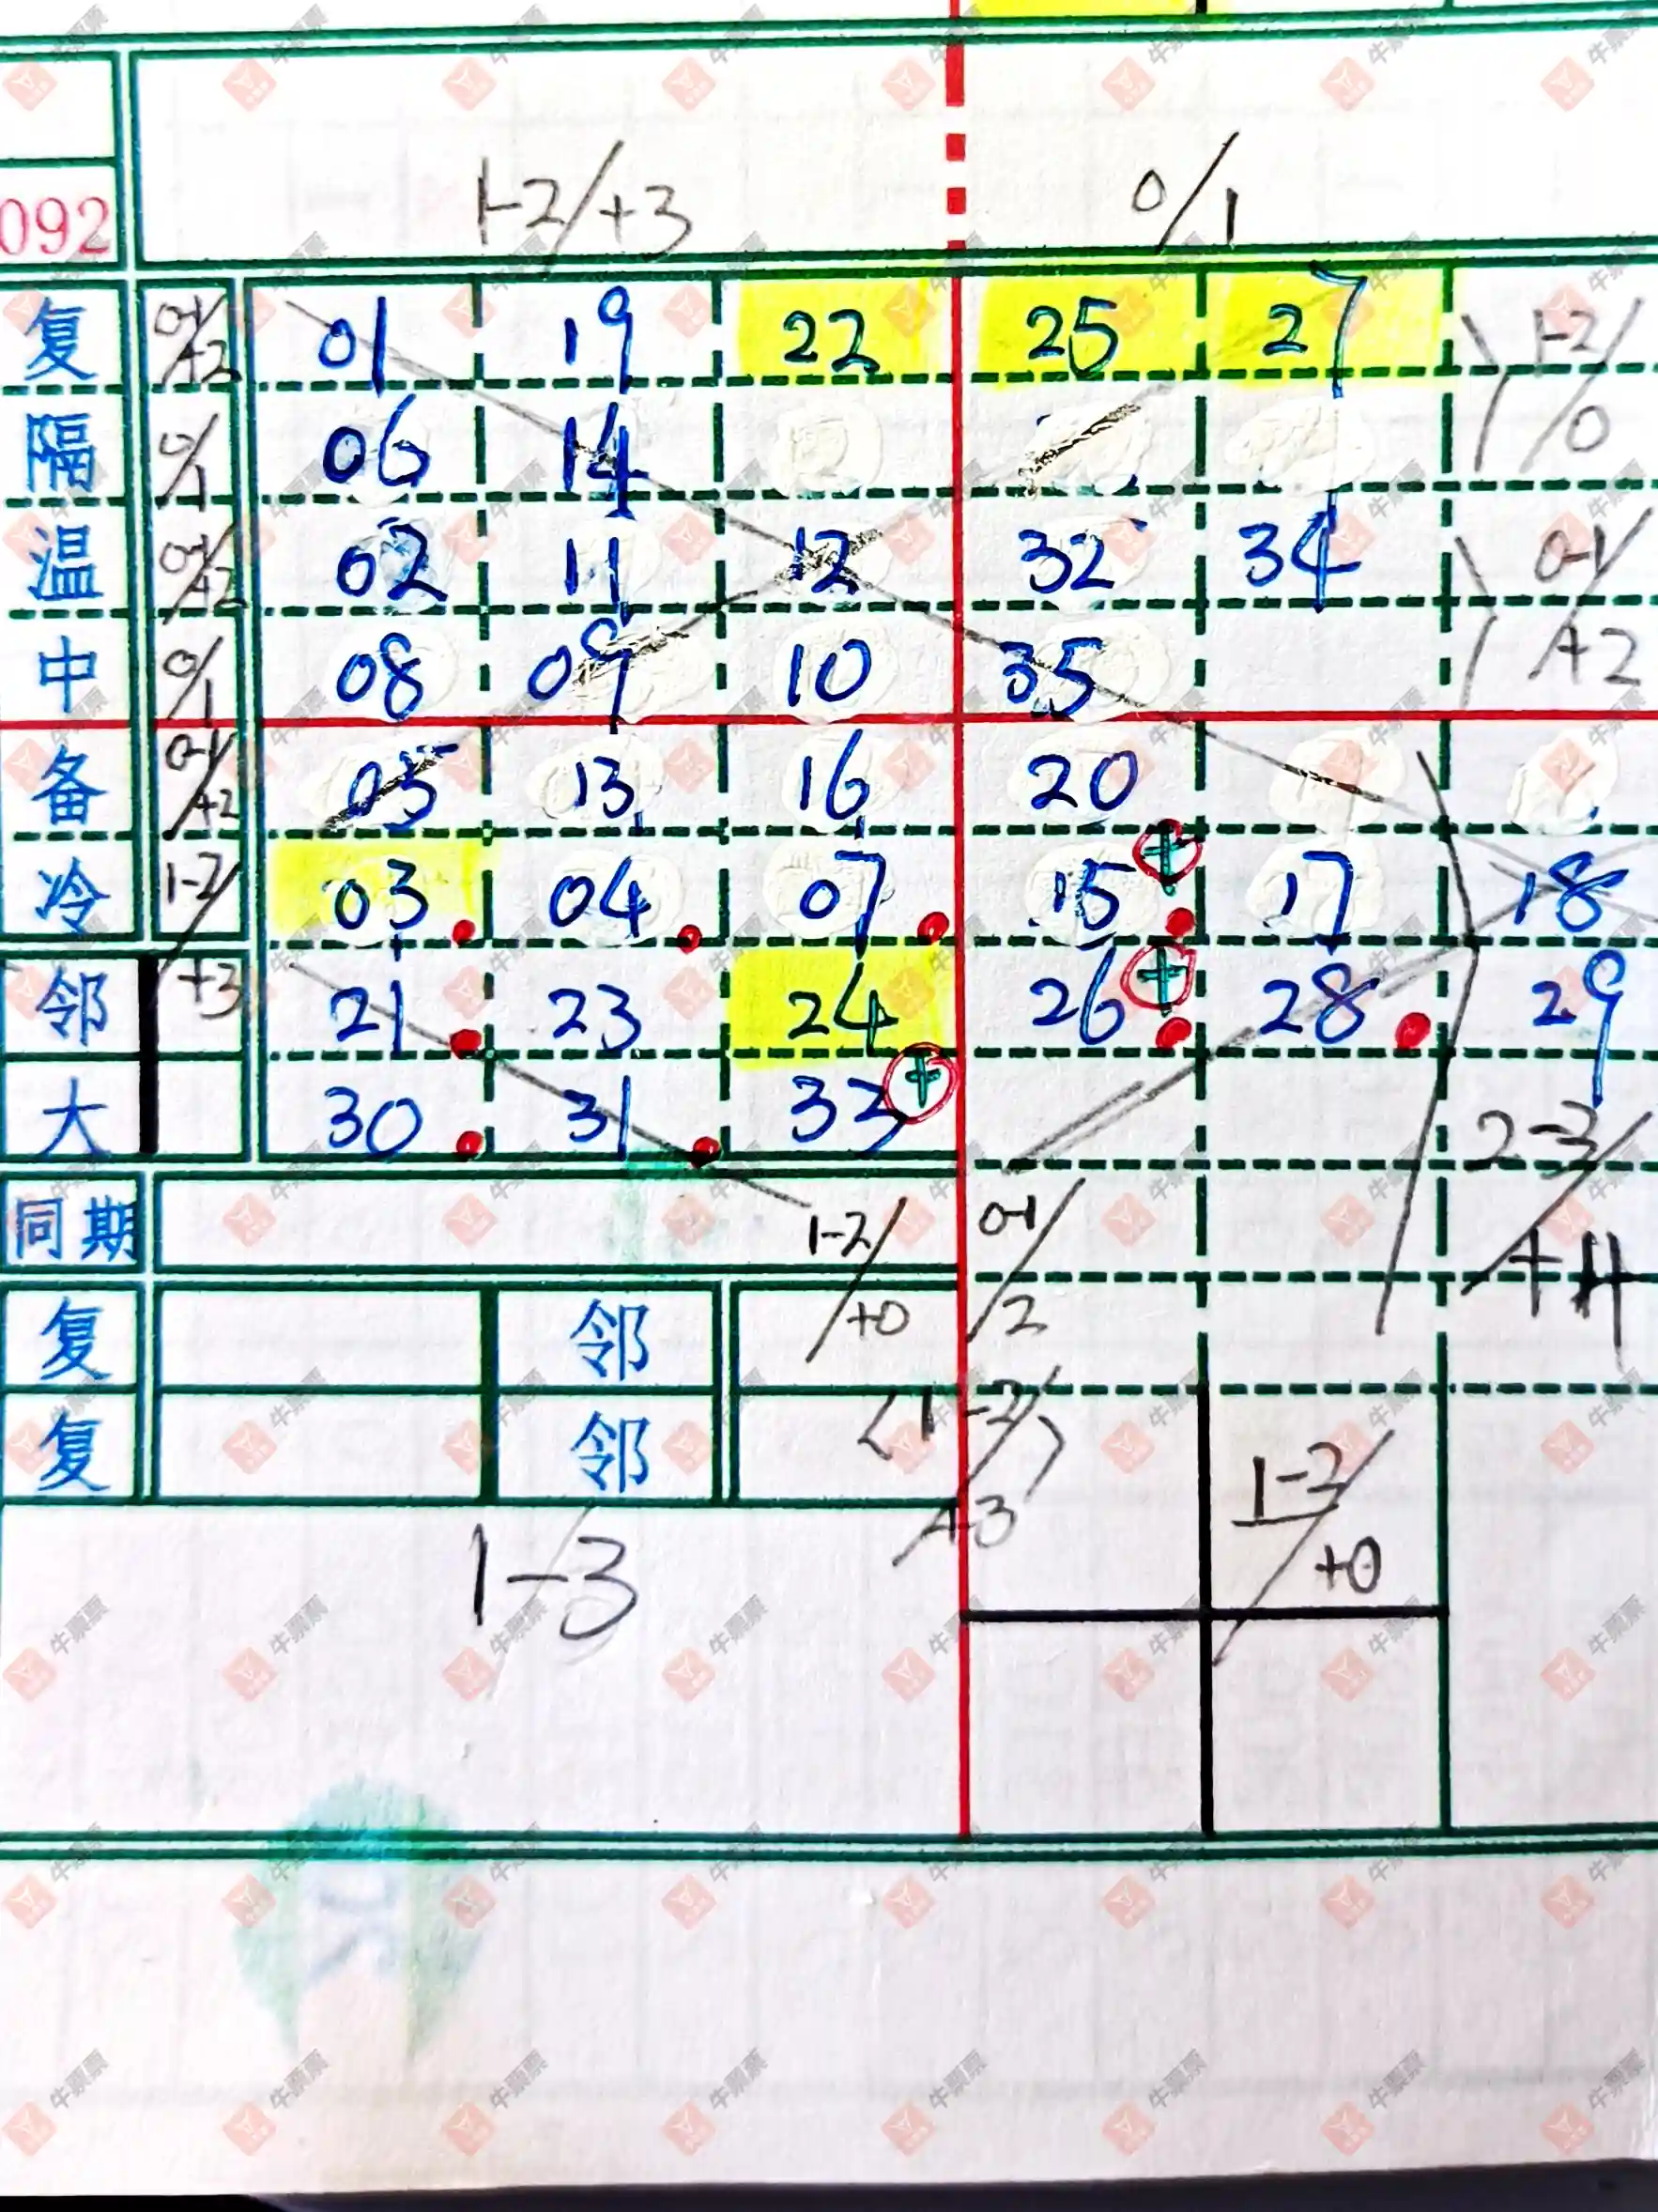 1-2/+3 0/1
092
复 0-1/+2 01 19 22 25 27 1-2/0
隔 0/1 06 14
温 0-1/+2 02 11 12 32 34 0-1/+2
中 0/1 08 09 10 35
备 0-1/+2 05 13 16 20
冷 1-2/+3 03 04 07 15 17 18
邻 21 23 24 26 28 29
大 30 31 33 2-3/+4
同期 1-2/+0 0-1/2
复 邻
复 邻 <1-2/> +3 1-2/+0
1-3
牛票票